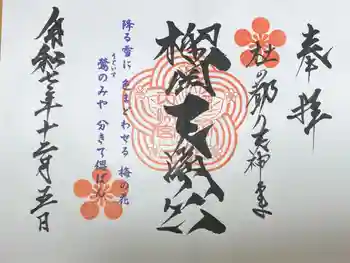 奉拝
杜の都の天神さま
榴岡天満宮
降る雪に 色まどわせる 梅の花
うぐいす
鶯のみや 分きて偲ばん
令和七年十二月五日